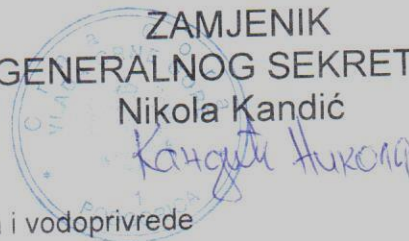 ZAMJENIK
GENERALNOG SEKRET
Nikola Kandić
Кандић Никола
i vodoprivrede